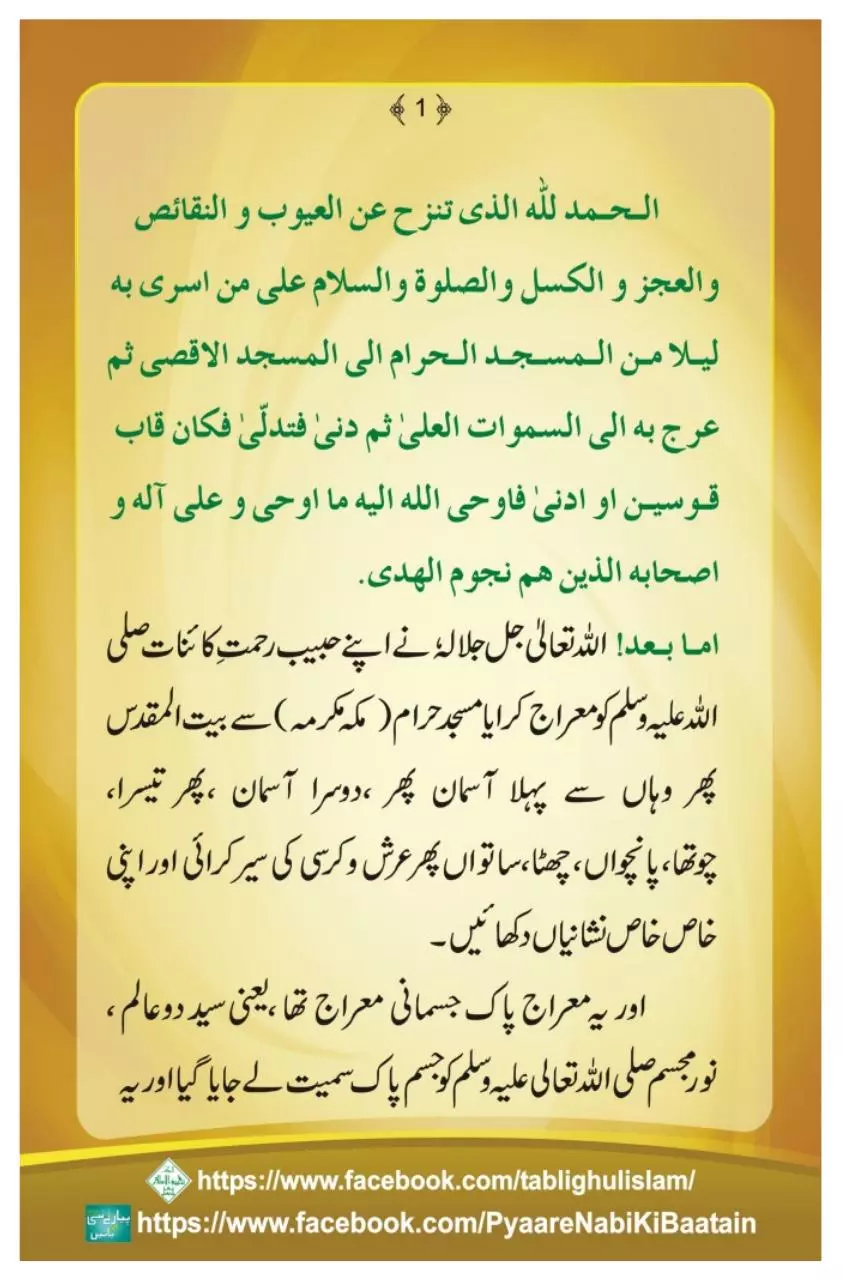 ﴾ 1 ﴿
الحمد لله الذى تنزح عن العيوب و النقائص
والعجز و الكسل والصلوة والسلام على من اسرى به
ليلا من المسجد الحرام الى المسجد الاقصى ثم
عرج به الى السموات العلىٰ ثم دنىٰ فتدلّىٰ فكان قاب
قوسين او ادنىٰ فاوحى الله اليه ما اوحى و على آله و
اصحابه الذين هم نجوم الهدى.
اما بعد! اللہ تعالیٰ جل جلالہٗ نے اپنے حبیب رحمتِ کائنات صلی
اللہ علیہ وسلم کو معراج کرایا مسجد حرام (مکہ مکرمہ) سے بیت المقدس
پھر وہاں سے پہلا آسمان پھر ،دوسرا آسمان ،پھر تیسرا،
چوتھا، پانچواں، چھٹا،ساتواں پھر عرش و کرسی کی سیر کرائی اور اپنی
خاص خاص نشانیاں دکھائیں۔
اور یہ معراج پاک جسمانی معراج تھا ،یعنی سید دو عالم ،
نور مجسم صلی اللہ تعالی علیہ وسلم کو جسم پاک سمیت لے جایا گیا اور یہ
https://www.facebook.com/tablighulislam/
پیارے نبی کی باتیں
https://www.facebook.com/PyaareNabiKiBaatain